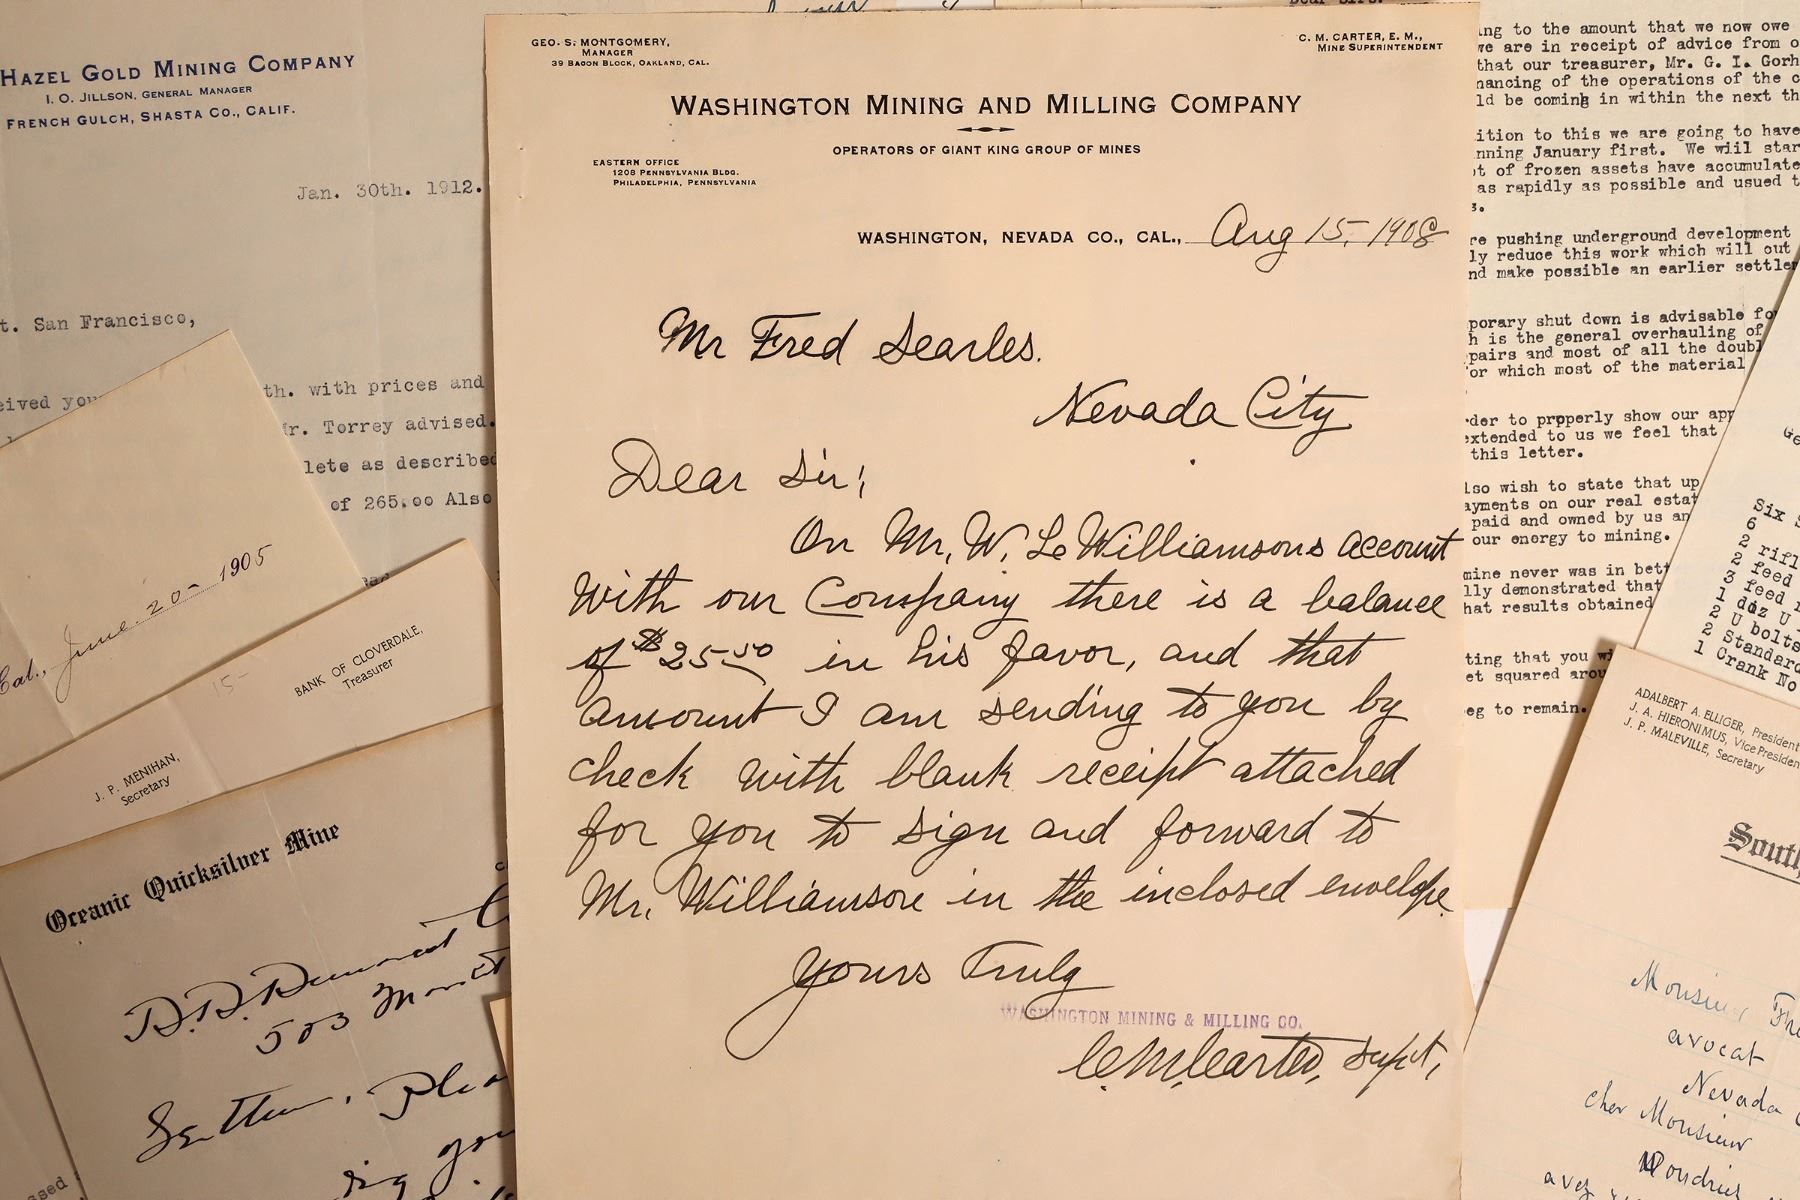 HAZEL GOLD MINING COMPANY
I. O. JILLSON, GENERAL MANAGER
FRENCH GULCH, SHASTA CO., CALIF.
Jan. 30th. 1912.
t. San Francisco,
eived you
th. with prices and
r. Torrey advised.
lete as described
of 265.00 Also
Cal., June. 20- 1905
15-
BANK OF CLOVERDALE,
Treasurer
J. P. MENIHAN,
Secretary
Oceanic Quicksilver Mine
503
GEO. S. MONTGOMERY,
MANAGER
39 BACON BLOCK, OAKLAND, CAL.
C. M. CARTER, E. M.,
MINE SUPERINTENDENT
WASHINGTON MINING AND MILLING COMPANY
OPERATORS OF GIANT KING GROUP OF MINES
EASTERN OFFICE
1208 PENNSYLVANIA BLDG.
PHILADELPHIA, PENNSYLVANIA
WASHINGTON, NEVADA CO., CAL., Aug 15, 1908
Mr Fred Searles.
Nevada City
Dear Sir;
On Mr. W. Le Williamsons account
with our Company there is a balance
of $25.50 in his favor, and that
amount I am sending to you by
check with blank receipt attached
for you to sign and forward to
Mr. Williamson in the inclosed envelope
Yours Truly
WASHINGTON MINING & MILLING CO.
C. M. Carter, Supt,
Dear Sirs:
ing to the amount that we now owe
we are in receipt of advice from o
that our treasurer, Mr. G. I. Gorh
nancing of the operations of the c
ld be coming in within the next th
ition to this we are going to have
nning January first. We wiil star
ot of frozen assets have accumulate
as rapidly as possible and usued t
s.
re pushing underground development
ly reduce this work which will cut
nd make possible an earlier settlem
porary shut down is advisable fo
h is the general overhauling of
pairs and most of all the doubl
or which most of the material
rder to properly show our app
extended to us we feel that
this letter.
lso wish to state that up
ayments on our real estat
paid and owned by us an
our energy to mining.
mine never was in bett
lly demonstrated that
hat results obtained
ting that you wi
et squared arou
eg to remain.
Ge
Six S
6
2 rifl
2 feed
3 feed
1 doz U
2 U bolts
2 Standard
1 Crank No
ADALBERT A. ELLIGER, President
J. A. HIERONIMUS, Vice President
J. P. MALEVILLE, Secretary
South
Monsieur
avocat
Nevada
cher Monsieur
avez